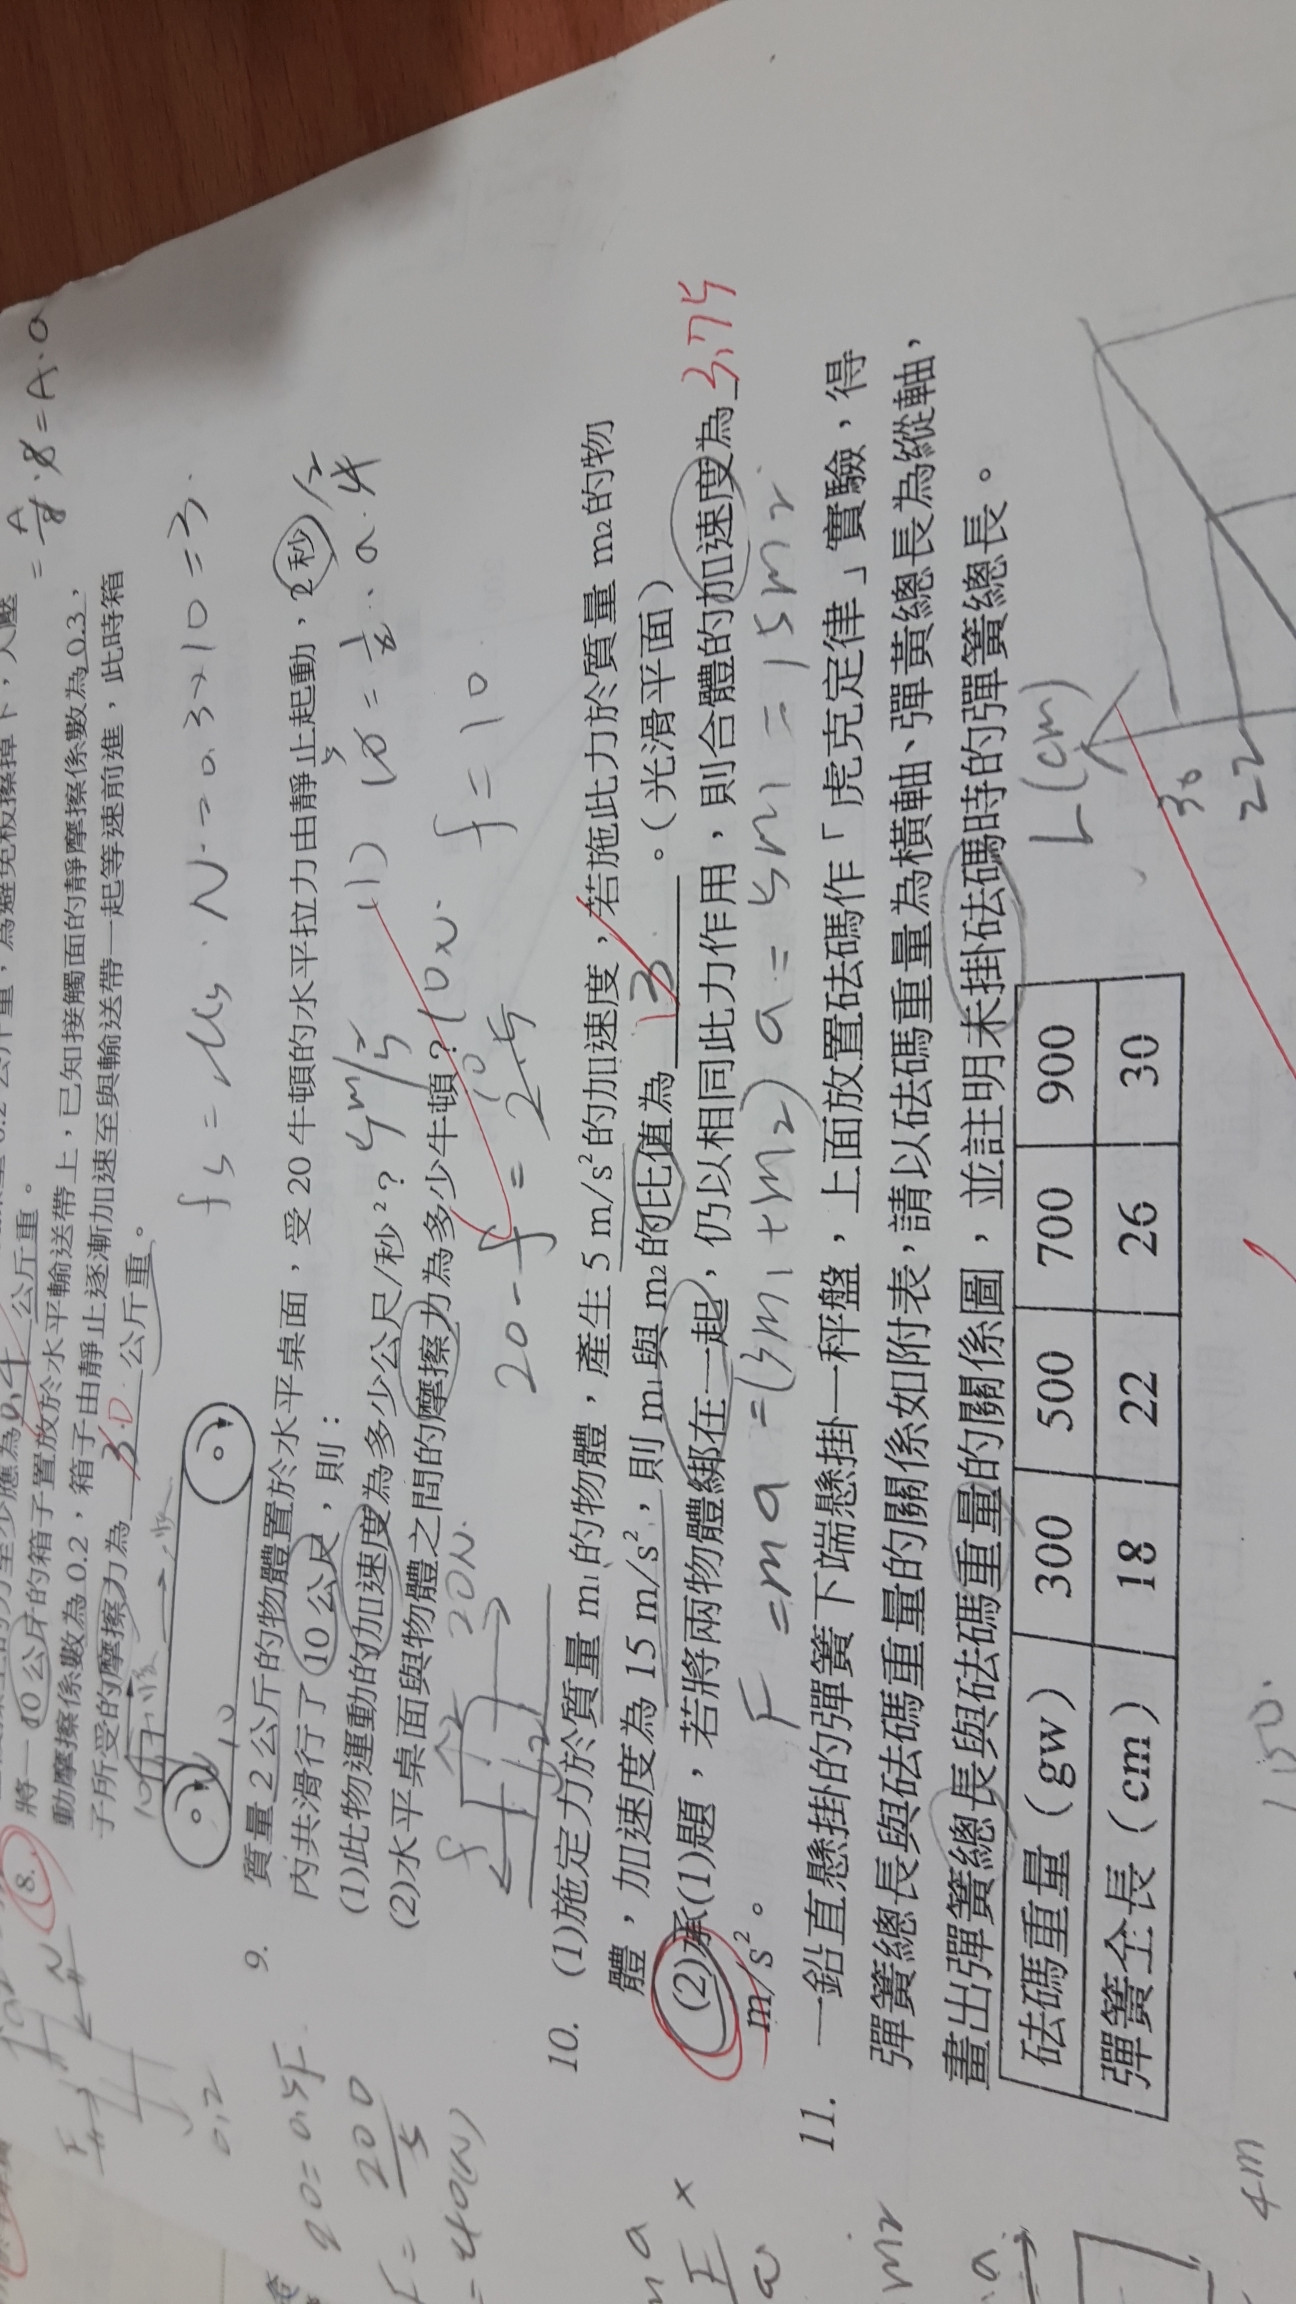 = A/8 · 8 = A · a
公斤重。
8. 將一 10 公斤的箱子置放於水平輸送帶上，已知接觸面的靜摩擦係數為 0.3，
動摩擦係數為 0.2，箱子由靜止逐漸加速至與輸送帶一起等速前進，此時箱
子所受的摩擦力為 公斤重。
fs = μs · N = 0.3 × 10 = 3.
9. 質量 2 公斤的物體置於水平桌面，受 20 牛頓的水平拉力由靜止起動，2 秒
內共滑行了 10 公尺，則：
(1)此物運動的加速度為多少公尺/秒²？
(2)水平桌面與物體之間的摩擦力為多少牛頓？ 10N.
20N
20 - f = 2·5
f = 10
10. (1)施定力於質量 m₁的物體，產生 5 m/s²的加速度，若施此力於質量 m₂的物
體，加速度為 15 m/s²，則 m₁與 m₂的比值為 3 。（光滑平面）
(2)承(1)題，若將兩物體綁在一起，仍以相同此力作用，則合體的加速度為 3.75
m/s²。
F = ma = (m₁ + m₂) a = 5m₁ = 15m₂
11. 一鉛直懸掛的彈簧下端懸掛一秤盤，上面放置砝碼作「虎克定律」實驗，得
彈簧總長與砝碼重量的關係如附表，請以砝碼重量為橫軸、彈簧總長為縱軸，
畫出彈簧總長與砝碼重量的關係圖，並註明未掛砝碼時的彈簧總長。
砝碼重量（gw） 300 500 700 900
彈簧全長（cm） 18 22 26 30
L(cm)
30
22
0.2
20 = 0.5F
200
5
= 40(N)
m₂
4m
150.